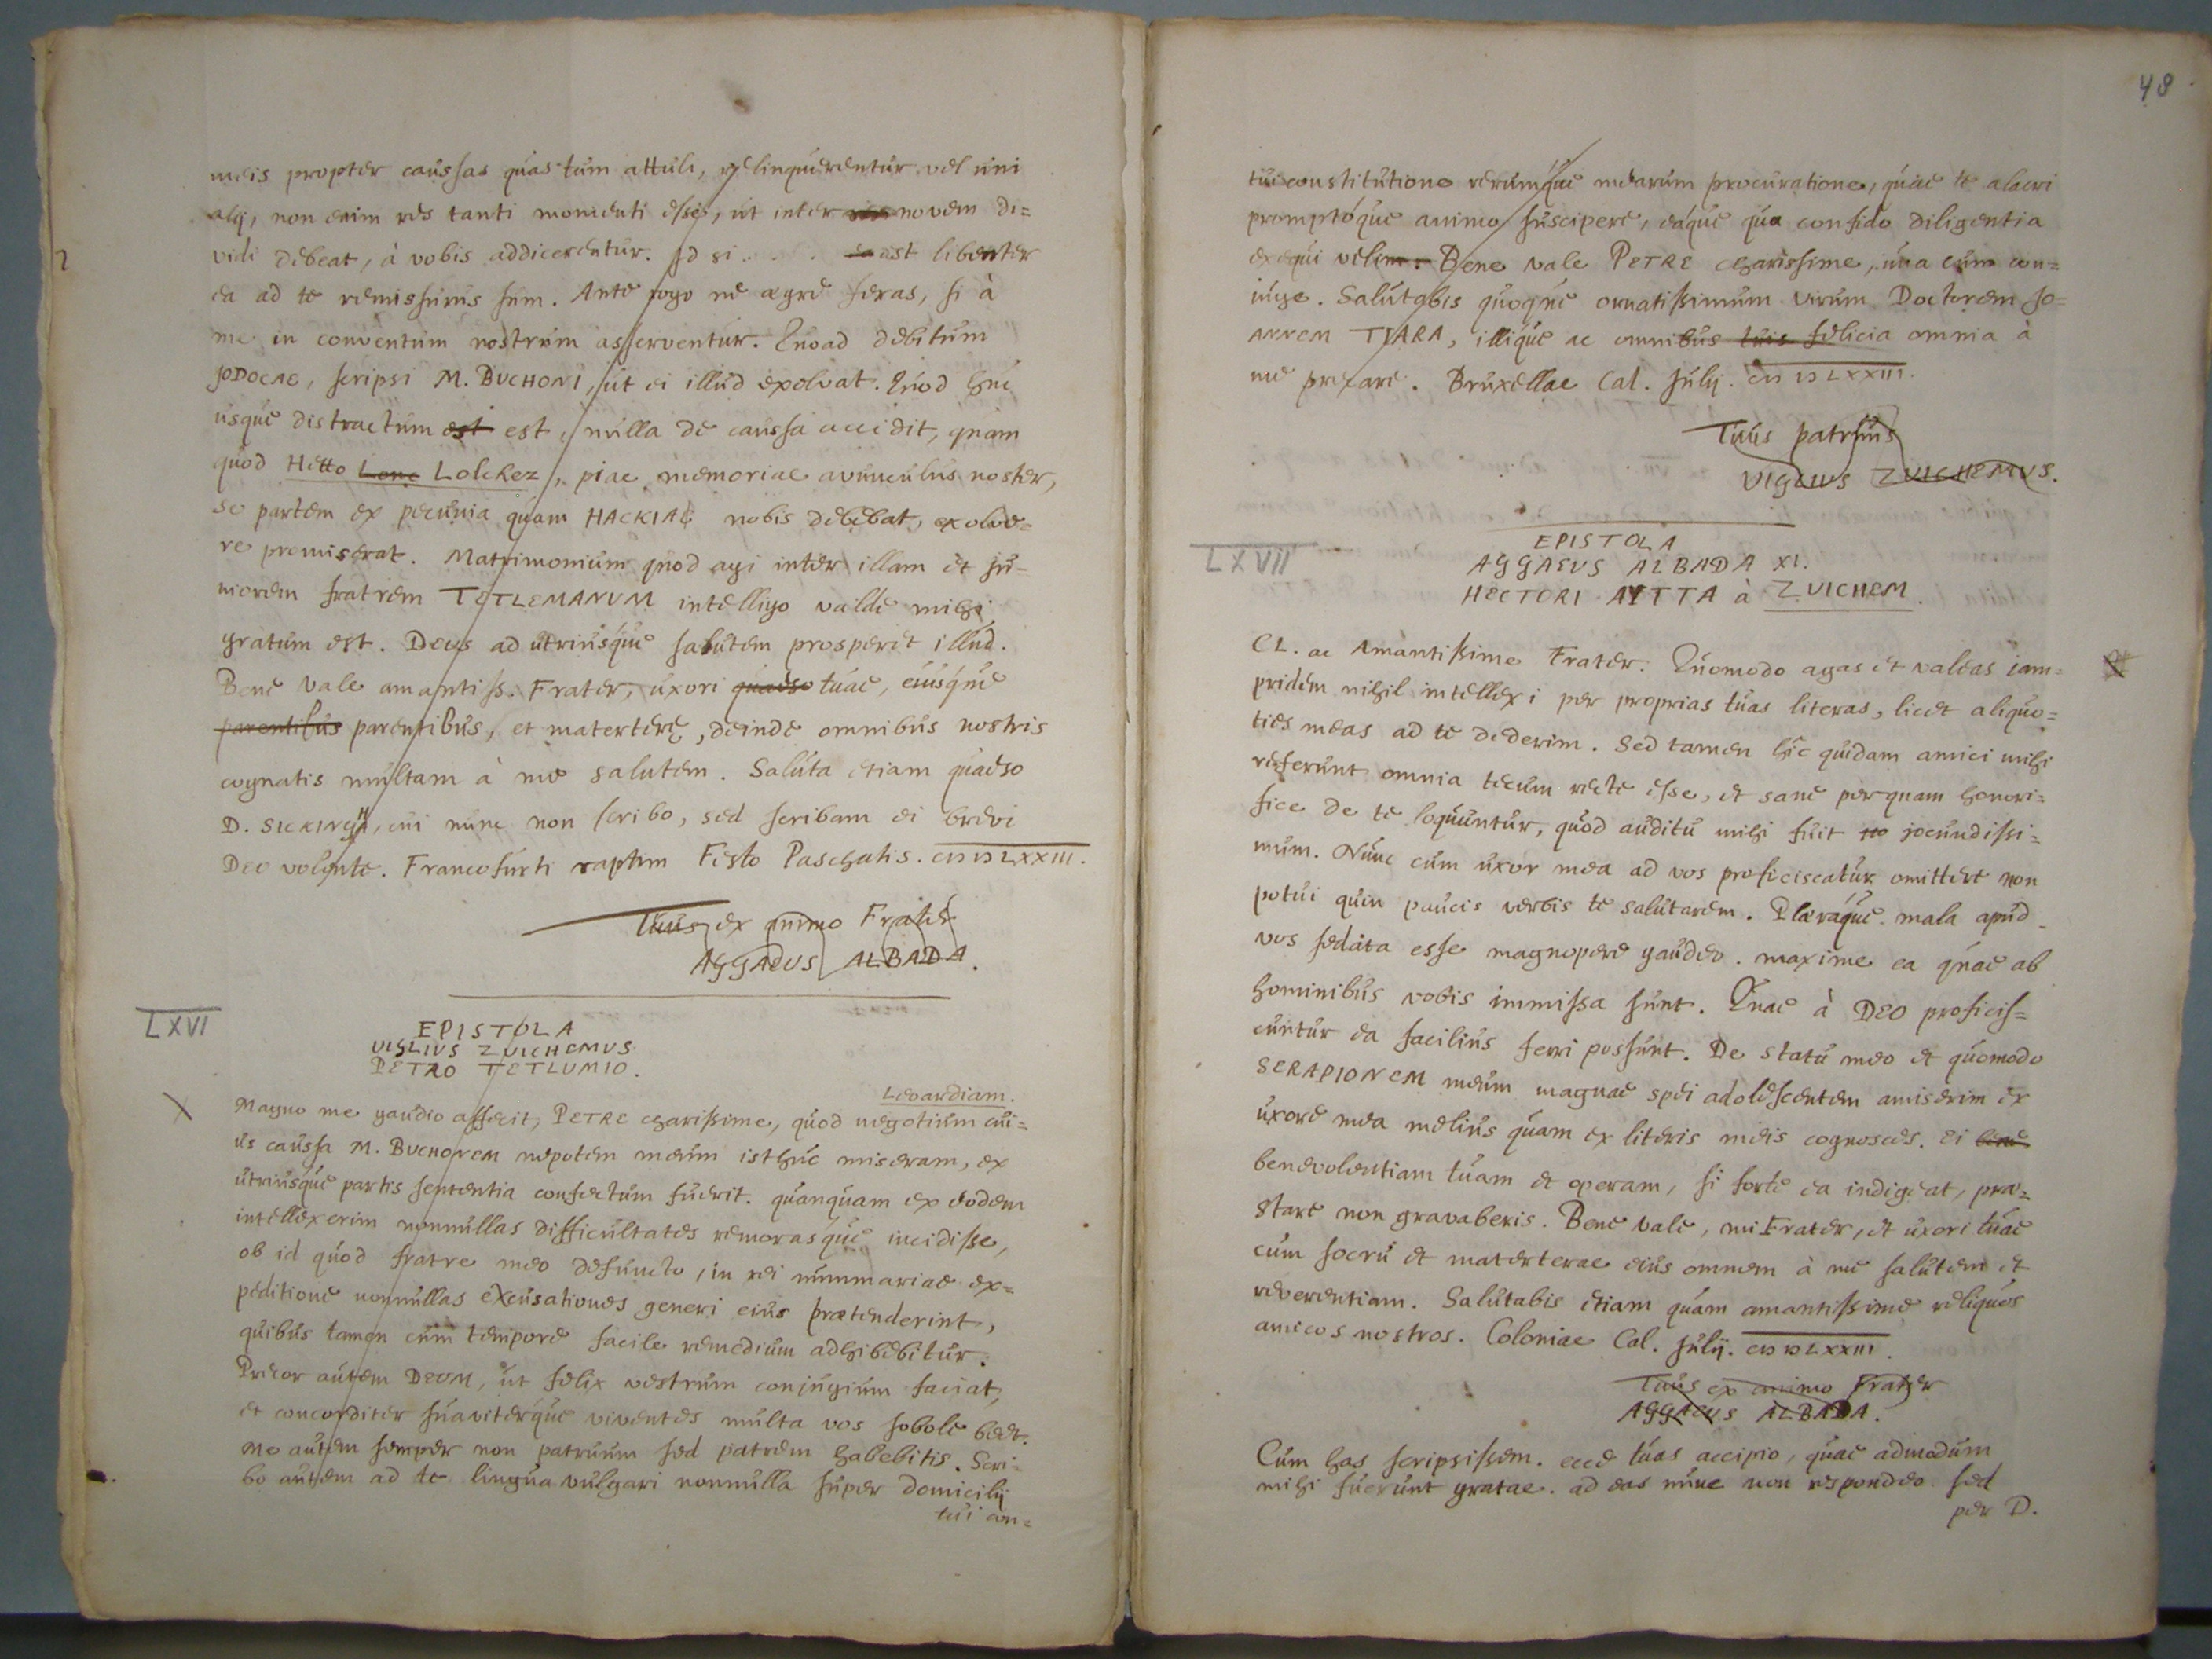 meis propter caussas quas tum attuli, relinquerentur vel uni
alij, non enim res tanti momenti esse, ut inter novem di=
vidi debeat, à vobis addicerentur. Id si . . . . est libenter
ea ad te remissurus sum. Ante rogo ne aegre feras, si à
me in conventum nostrum asserventur. Quoad debitum
JODOCAE, scripsi M. BUCHONI, ut ei illud exolvat. Quod huc
usque distractum est est, nulla de caussa accidit, quam
quod Hetto Lonc Lolckez, piae memoriae avunculus noster,
se partem ex pecunia quam HACKIAE nobis debebat, exolve=
re promiserat. Matrimonium quod agi inter illam et ju=
niorem fratrem TETLEMANUM intelligo valde mihi
gratum est. Deus ad utriusque salutem prosperet illud.
Bene vale amantiss. Frater, uxori quaeso tuae, eiusque
parentibus parentibus, et materterę, deinde omnibus nostris
cognatis multam à me salutem. Saluta etiam quaeso
D. SICKINGH, cui nunc non scribo, sed scribam ei brevi
DEO volente. Francofurti raptim Festo Paschatis. CIƆ IƆ LXXIII.
Tuus ex animo Frater
AGGAEUS ALBADA.
LXVI
EPISTOLA
VIGLIUS ZUICHEMUS
PETRO TETLUMIO.
Leoardiam.
X Magno me gaudio affecit, PETRE charissime, quod negotium cui=
us caussa M. BUCHONEM nepotem meum isthuc miseram, ex
utriusque partis sententia confectum fuerit. quanquam ex eodem
intellexerim nonnullas difficultates remorasque incidisse,
ob id quod fratre meo defuncto, in rei nummariae ex=
peditione nonnullas excusationes generi eius praetenderint,
quibus tamen cum tempore facile remedium adhibebitur.
Precor autem DEUM, ut felix vestrum conjugium faciat,
et concorditer suaviterque viventes multa vos sobole beet.
Me autem semper non patruum sed patrem habebitis. Scri=
bo autem ad te lingua vulgari nonnulla super domicilij
tui con=
48
tui constitutione rerumque mearum procuratione, quae te alacri
promptoque animo suscipere, eaque qua confido diligentia
exequi velim. Bene vale PETRE charissime, una cum con=
juge. Salutabis quoque ornatissimum virum Doctorem Jo=
ANNEM TIARA, illique ac omnibus tuis felicia omnia à
me precare. Bruxellae Cal. Julij. CIƆ IƆ LXXIII.
Tuus patruus
VIGLIUS ZUICHEMUS.
LXVII
EPISTOLA
AGGAEUS ALBADA XI.
HECTORI AYTTA à ZUICHEM.
CL. ac Amantissime Frater. Quomodo agas et valeas jam=
pridem nihil intellexi per proprias tuas literas, licet aliquo=
ties meas ad te dederim. Sed tamen hîc quidam amici mihi
referunt omnia tecum recte esse, et sane perquam honori=
fice de te loquuntur, quod auditu mihi fuit jo jocundissi=
mum. Nunc cum uxor mea ad vos proficiscatur omittere non
potui quin paucis verbis te salutarem. Pleraque mala apud
vos sedata esse magnopere gaudeo. maxime ea quae ab
hominibus vobis immissa sunt. Quae à DEO proficis=
cuntur ea facilius ferri possunt. De statu meo et quomodo
SERAPIONEM meum magnae spei adolescentem amiserim ex
uxore mea melius quam ex literis meis cognosces. Ei bene
benevolentiam tuam et operam, si forte ea indigeat, prae=
stare non gravaberis. Bene vale, mi Frater, et uxori tuae
cum socru et materterae eius omnem à me salutem et
reverentiam. Salutabis etiam quam amantissime reliquos
amicos nostros. Coloniae Cal. Julij. CIƆ IƆ LXXIII.
Tuus ex animo Frater
AGGAEUS ALBADA.
Cum has scripsissem. ecce tuas accipio, quae admodum
mihi fuerunt gratae. ad eas nunc non respondeo sed
per D.